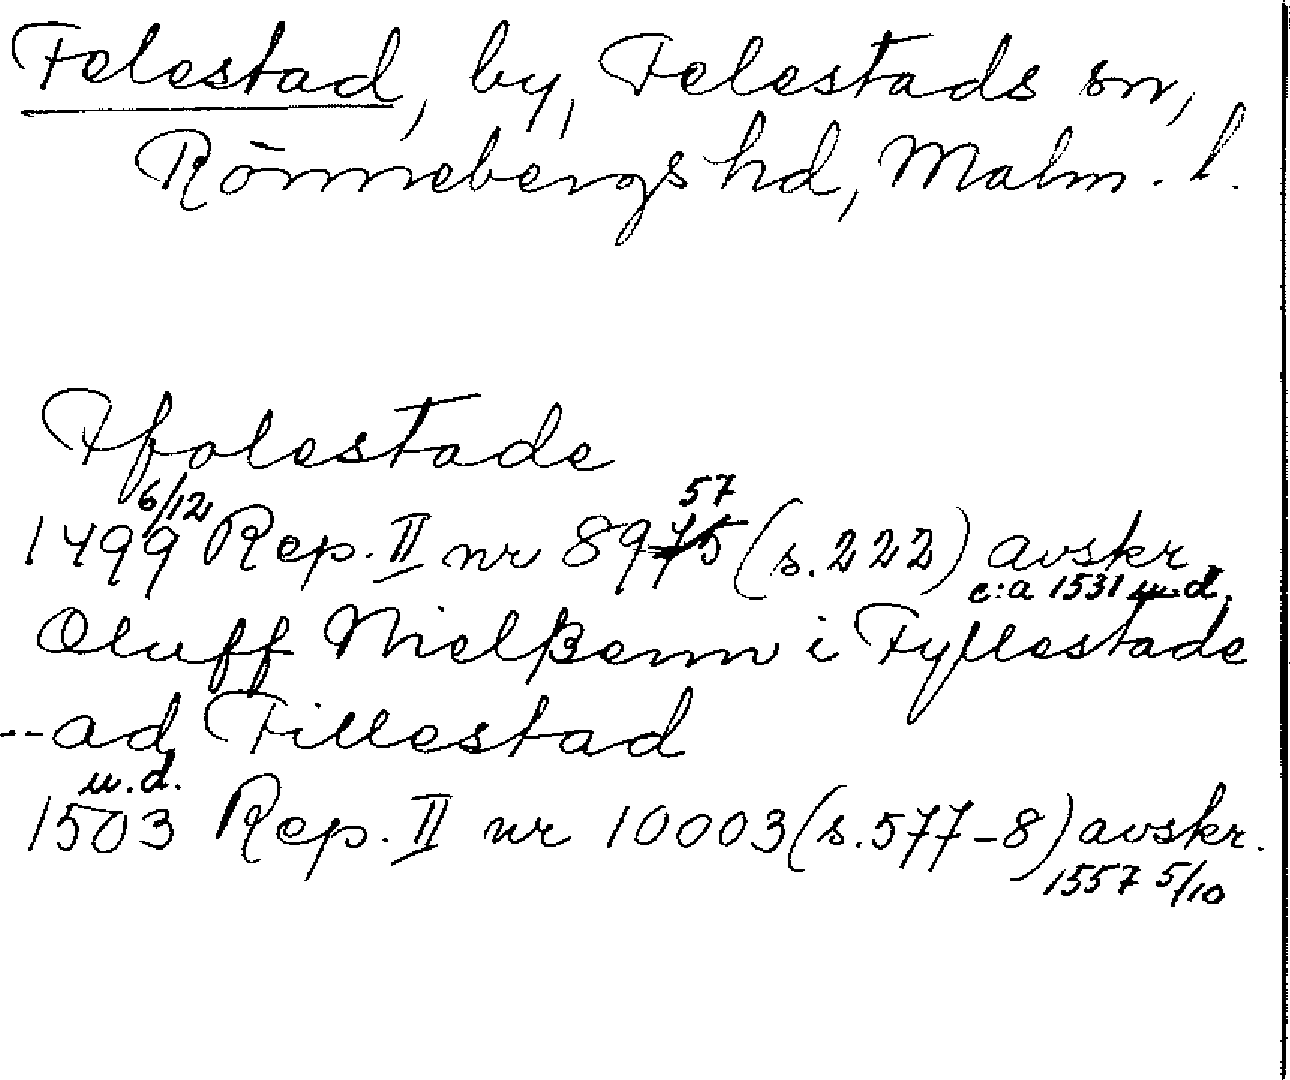 Felestad, by, Felestads sn,
Rönnebergs hd, Malm. l.
Ffolestade
6/12
57
1499 Rep. II nr 8975 (s.222) avskr.
c:a 1531 u.d.
Oluff Nielßenn i Fyllestade
--ad Fillestad
u.d.
1503 Rep. II nr 10003 (s.577-8) avskr.
1557 5/10